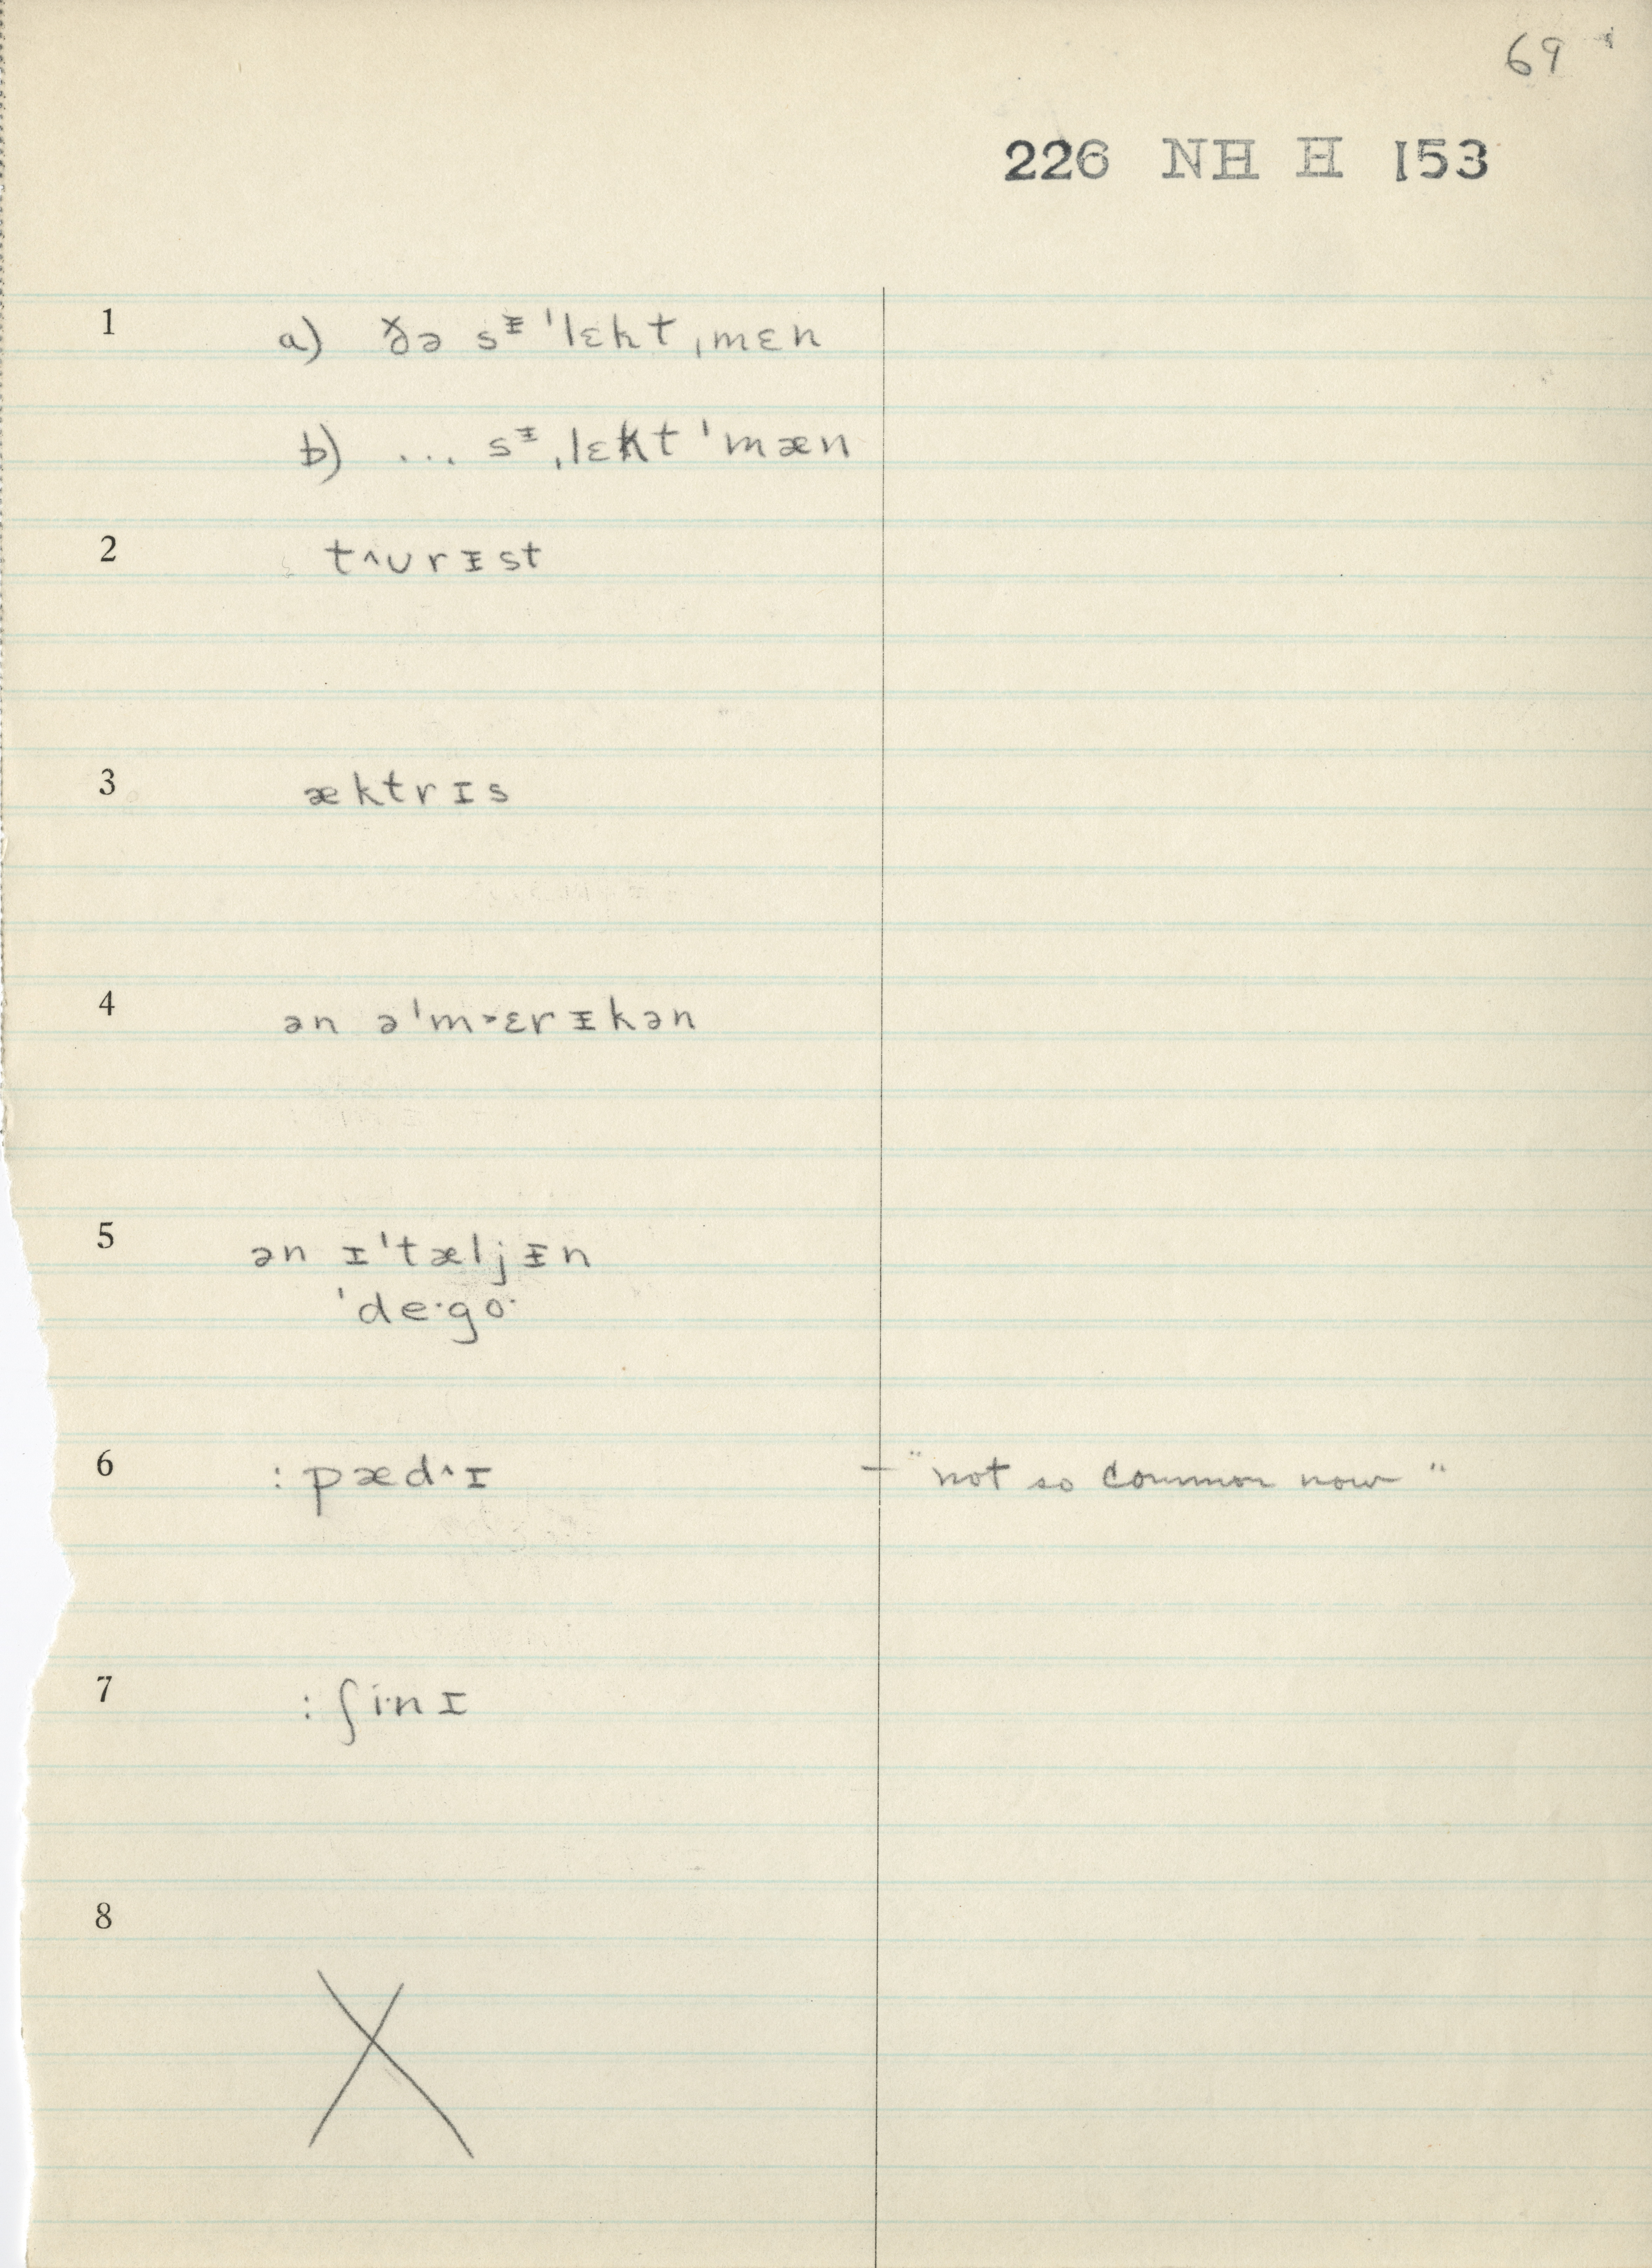 69
226 NH H 153
1 a) ðə sᵻ 'lɛkt ˌmɛn
b) ... sᵻ ˌlɛkt 'mæn
2 t^ᴜrᵻst
3 æktrɪs
4 ən ə'm>ɛrᵻkən
5 ən ɪ'tæljᵻn
'de·go·
6 : pæd^ɪ – "not so common now"
7 : ʃi·nɪ
8 X